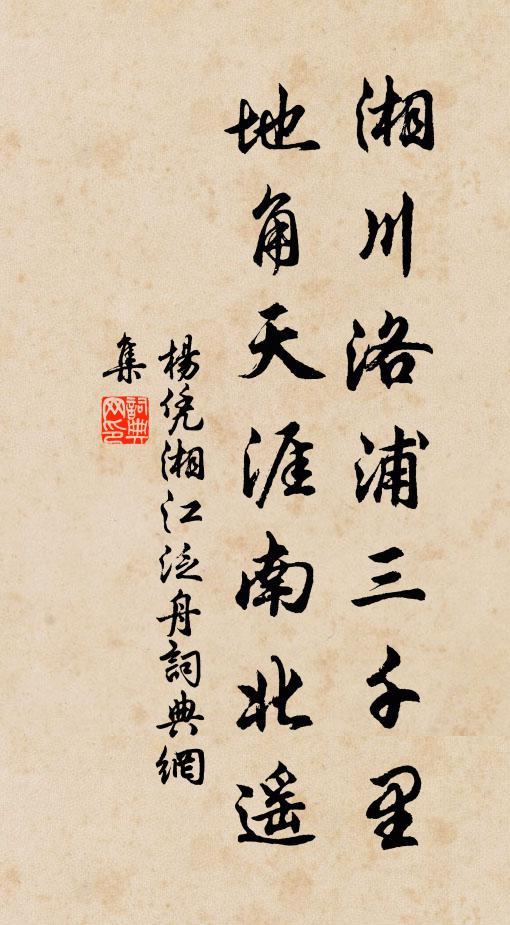 湘川洛浦三千里
地角天涯南北遥
楊凭湘江泛舟詞典網
集
詞典
网印